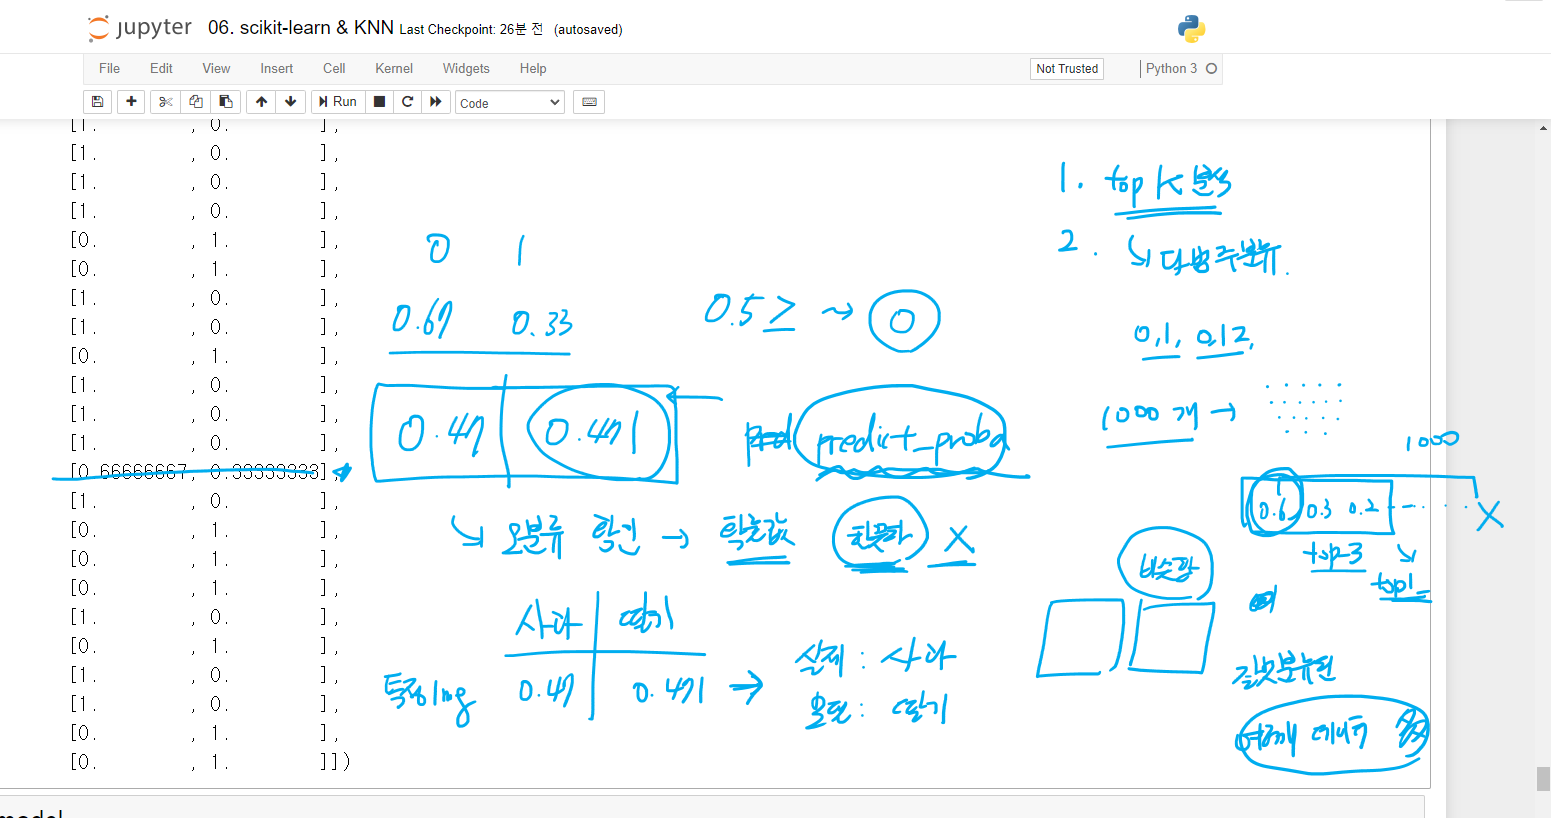 jupyter 06. scikit-learn & KNN Last Checkpoint: 26분 전 (autosaved)
File Edit View Insert Cell Kernel Widgets Help Not Trusted Python 3
Run Code
[1. , 0. ],
[1. , 0. ],
[1. , 0. ],
[1. , 0. ],
[0. , 1. ],
[0. , 1. ],
[1. , 0. ],
[1. , 0. ],
[0. , 1. ],
[1. , 0. ],
[1. , 0. ],
[1. , 0. ],
[0.66666667, 0.33333333],
[1. , 0. ],
[0. , 1. ],
[0. , 1. ],
[0. , 1. ],
[1. , 0. ],
[0. , 1. ],
[1. , 0. ],
[1. , 0. ],
[0. , 1. ],
[0. , 1. ]])
0 1
0.67 0.33
0.5 ≥ → 0
0.47 0.471
predict_proba
오분류 확인 → 확률값 X
사과 딸기
특정 img 0.47 0.471 →
실제 : 사과
오분류 : 딸기
1. top K 분석
2. ↘ 다범주분류.
0.1, 0.12,
1000개 →
1000
0.6 0.3 0.2 X
top-3
top1
비슷함
잘못분류된
데이터
model